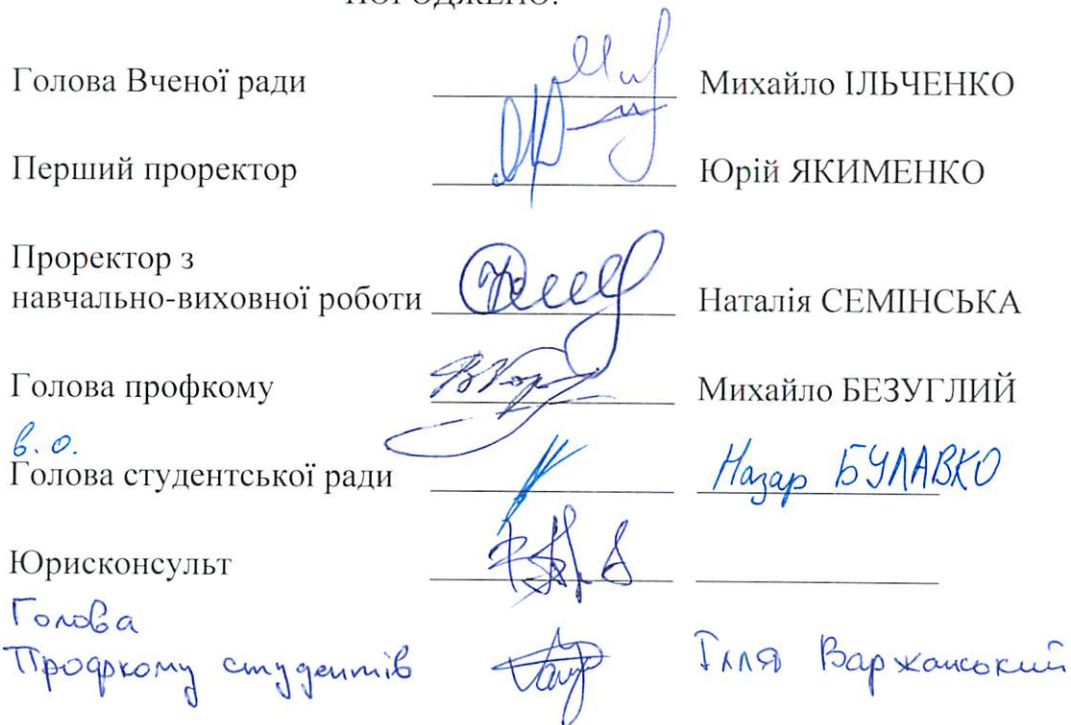 ПОГОДЖЕНО:
Голова Вченої ради Михайло ІЛЬЧЕНКО
Перший проректор Юрій ЯКИМЕНКО
Проректор з
навчально-виховної роботи Наталія СЕМІНСЬКА
Голова профкому Михайло БЕЗУГЛИЙ
в.о.
Голова студентської ради Назар БУЛАВКО
Юрисконсульт
Голова
Профкому студентів Ілля Варжанський